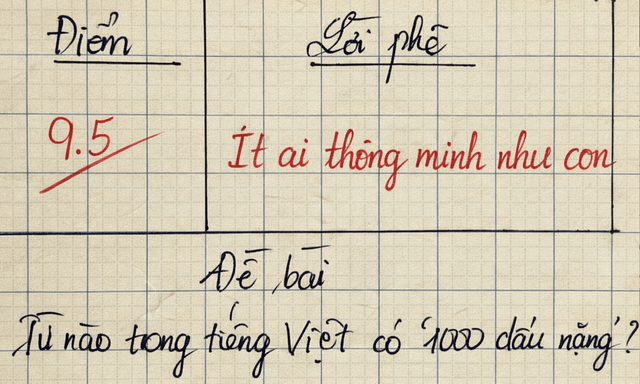 Điểm
Lời phê
9.5
Ít ai thông minh như con
Đề bài
Từ nào trong tiếng Việt có '1000 dấu nặng'?